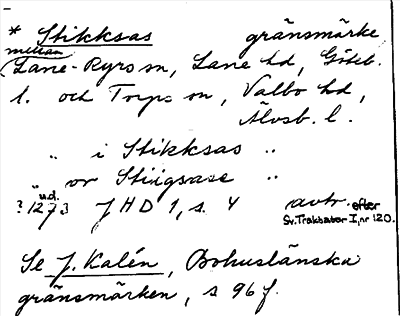 * Stikksas gränsmärke
mellan
Lane-Ryrs sn, Lane hd, Göteb.
l. och Torps sn, Valbo hd,
Älvsb. l.
" i Stikksas "
" or Stiigsase "
u.d.
? 1273 JHD 1, s. 4 avtr. efter
Sv. Traktater I, nr 120.
Se J. Kalén, Bohuslänska
gränsmärken, s 96 f.